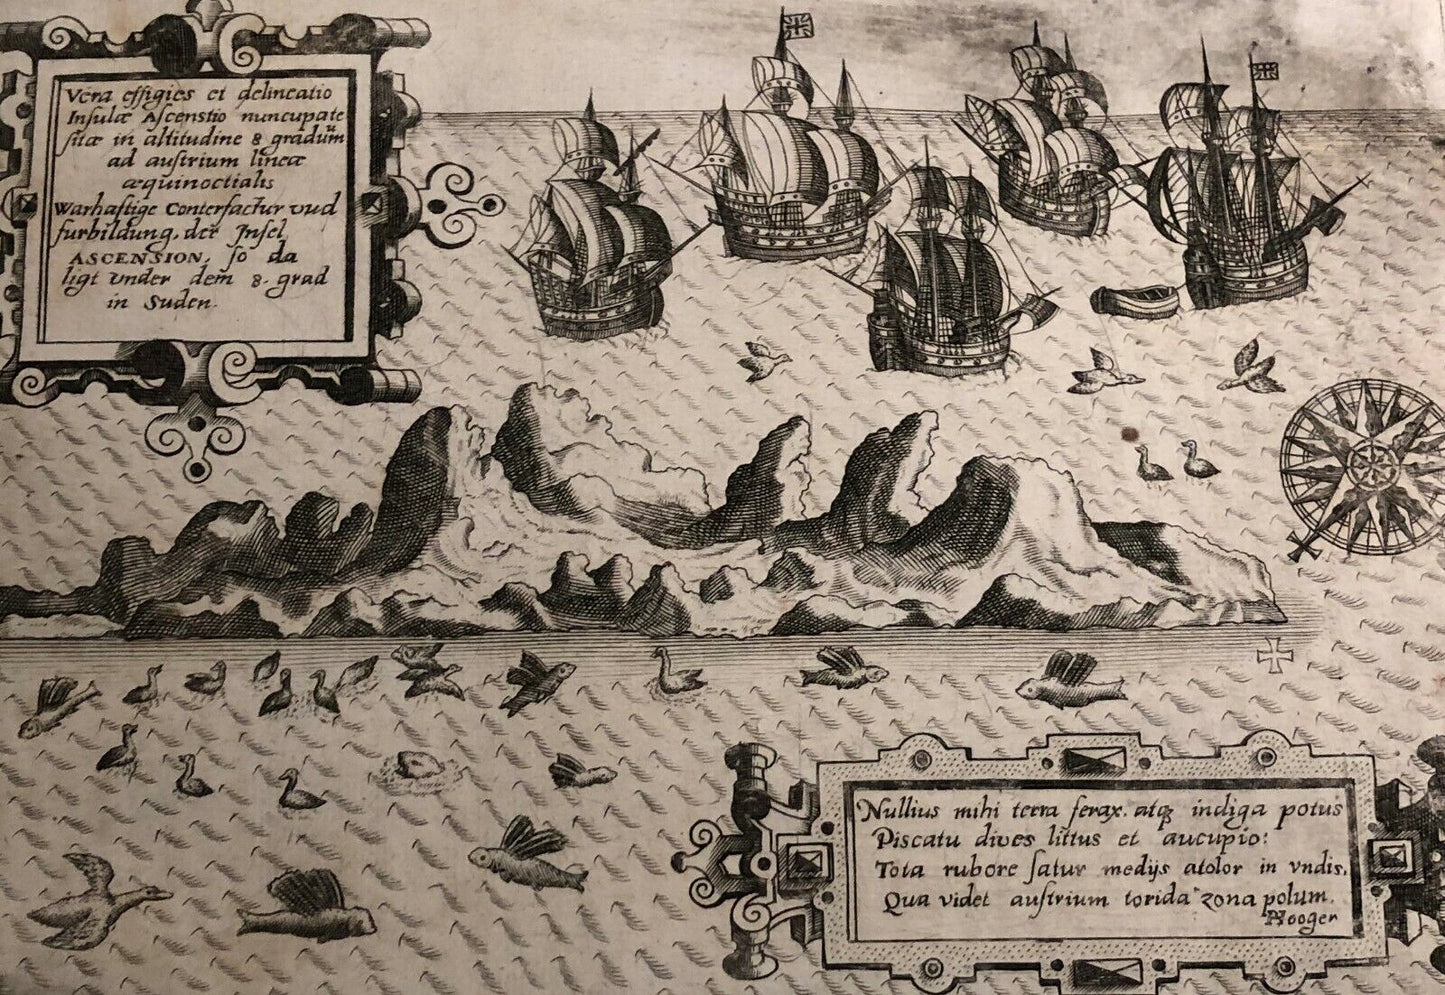 Vera effigies et delineatio
Insulæ Ascenstio nuncupate
sitæ in altitudine 8 graduum
ad austrium lineæ
æquinoctialis
Warhaftige Conterfactur vnd
furbildung, der Insel
ASCENSION, so da
ligt vnder dem̄ 8. grad
in Suden.
Nullius mihi terra ferax, atqꝫ indiga potus
Piscatu dives littus et aucupio:
Tota rubore satur medijs atolor in vndis,
Qua videt austrium torida zona polum.
Hooger